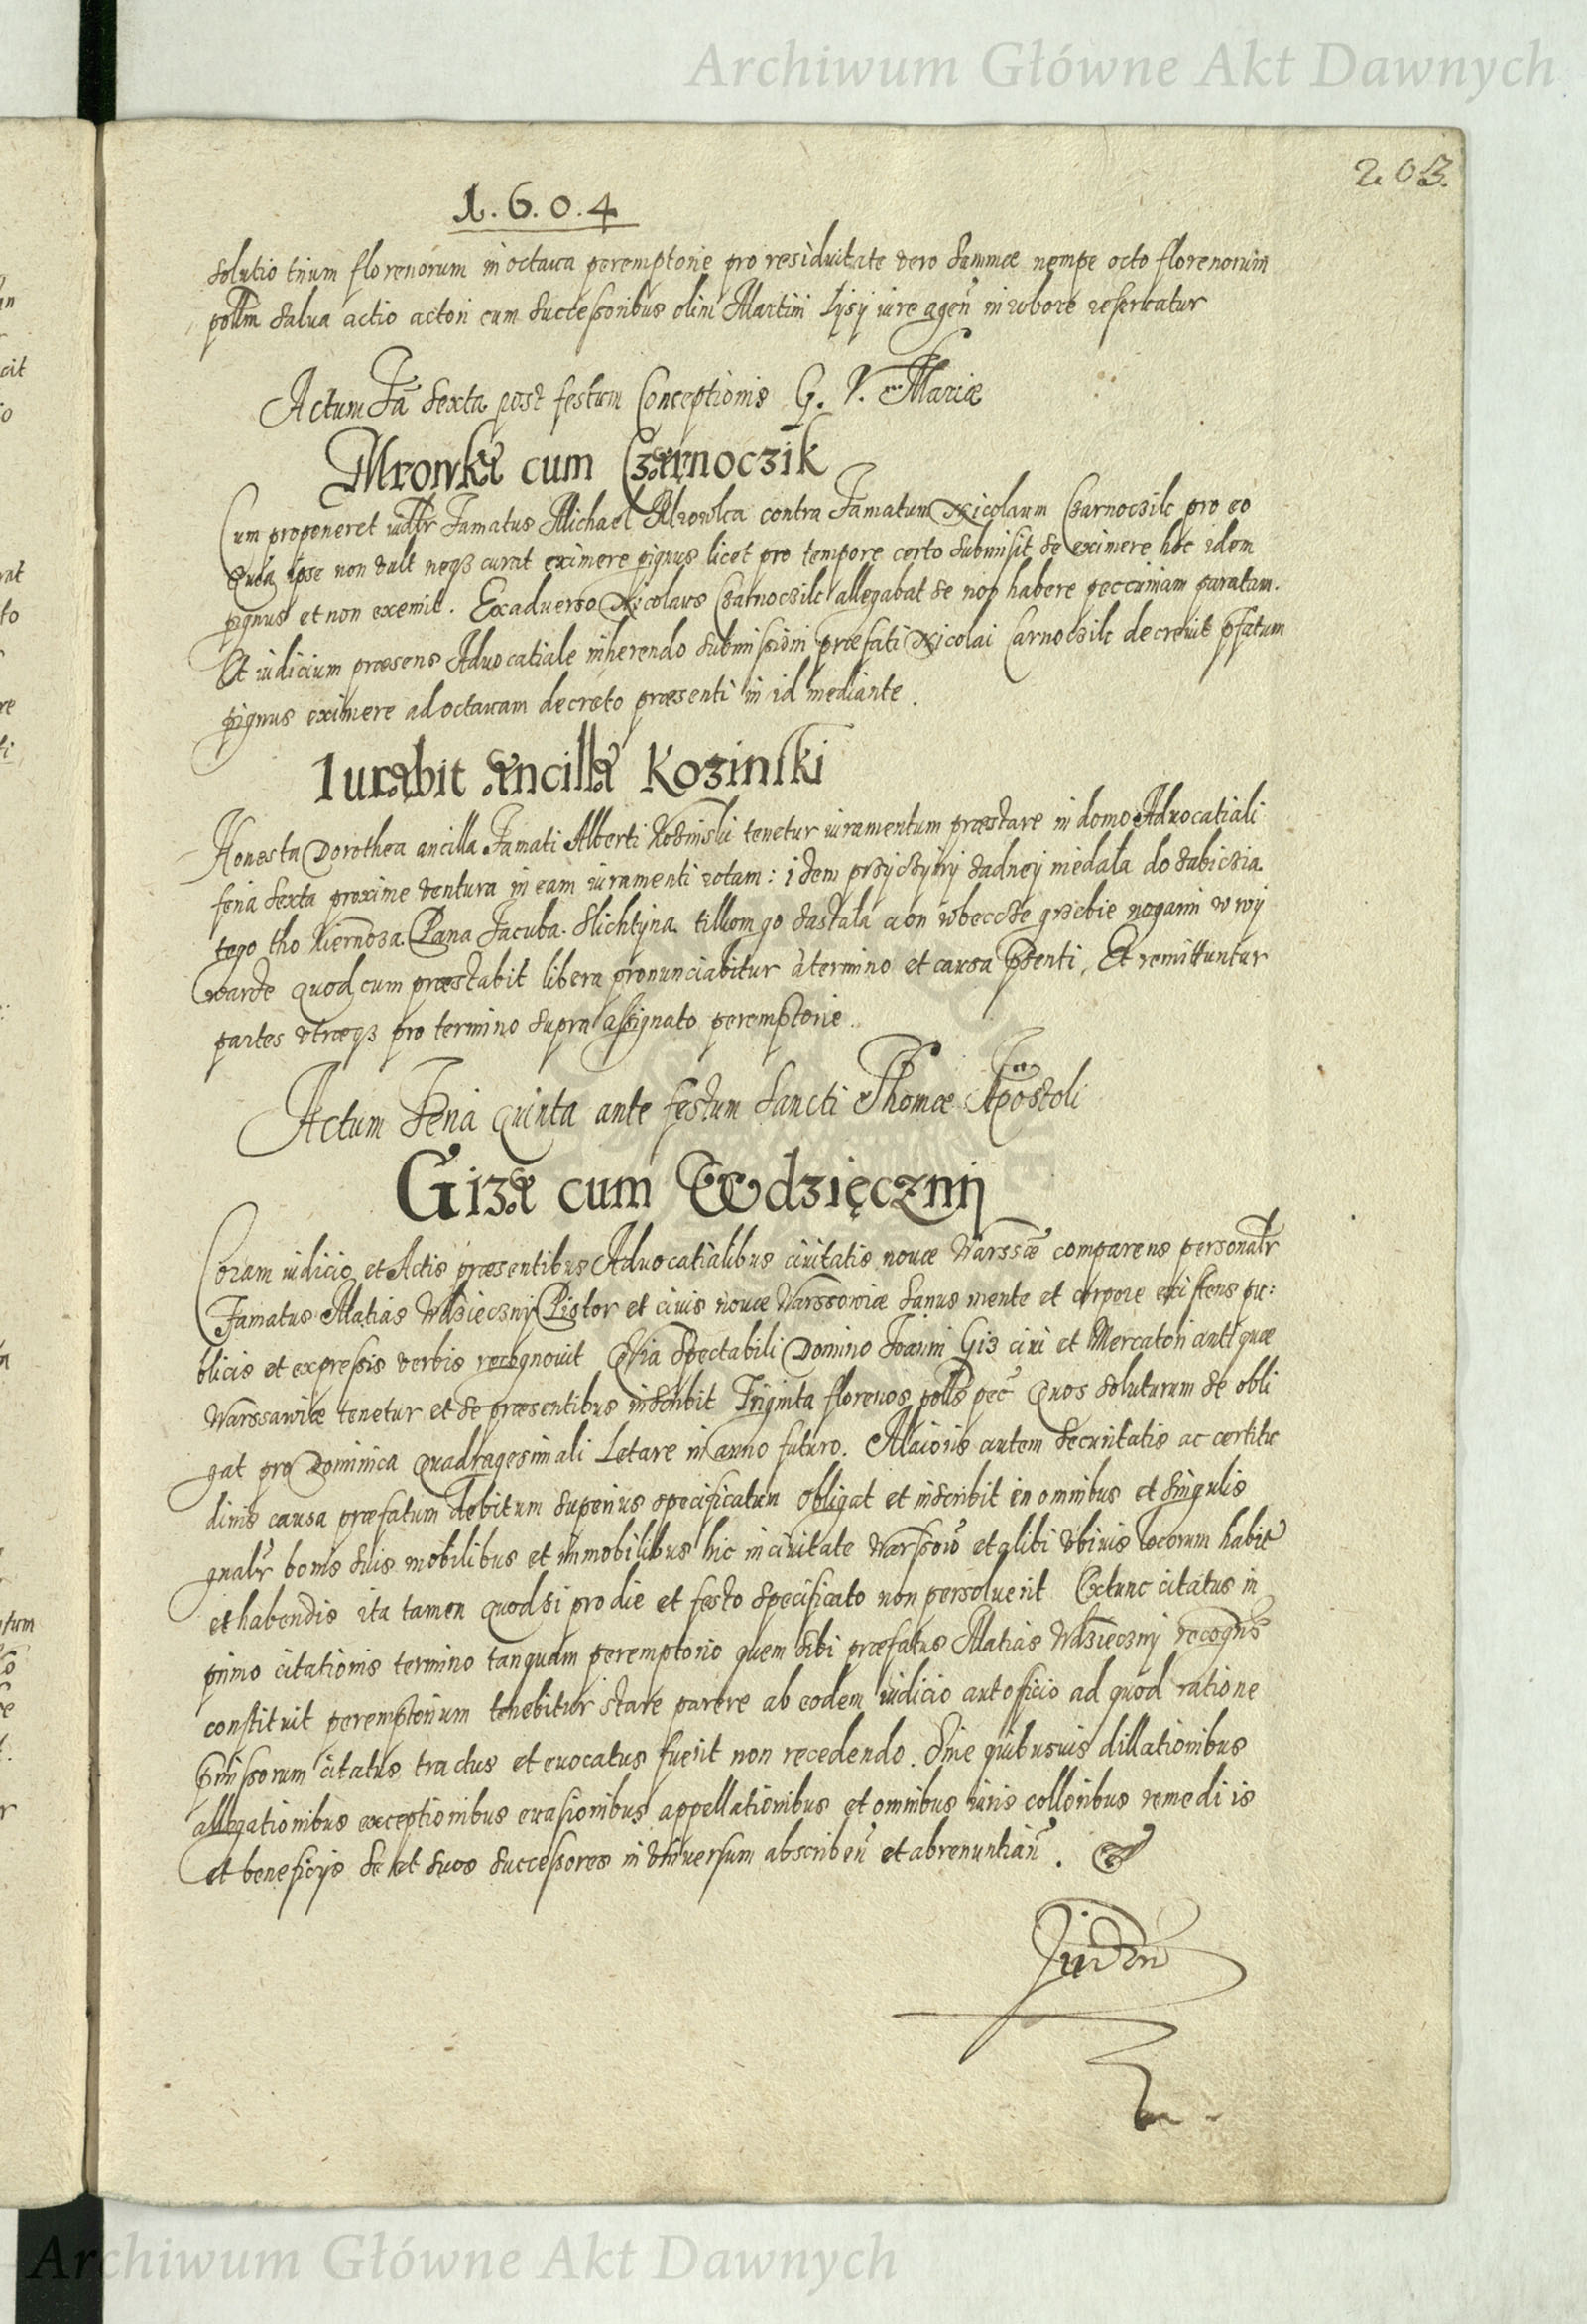 Archiwum Główne Akt Dawnych
203.
1.6.0.4
solutio trium florenorum in octava peremptorie pro residuitate vero summæ nempe octo florenorum
pollm salva actio actori cum successoribus olim Martini Lysy iure agen in robore reservatur
Actum Fa sexta post festum Conceptionis G. V. Mariæ
Mrowka cum Czarnoczik
Cum proponeret iudtr Famatus Michael Mrowka contra Famatum Nicolaum Czarnoczik pro eo
Quia ipse non vult neqz curat eximere pignus licet pro tempore certo submisit se eximere hoc idem
pignus et non exemit. Exadverso Nicolaus Czarnoczik allegabat se non habere peccuniam paratam.
Et iudicium præsens Advocatiale inherendo submissioni præfati Nicolai Carnoczik decrevit pfatum
pignus eximere ad octavam decreto præsenti in id mediante.
Iurabit ancilla Kozinski
Honesta Dorothea ancilla Famati Alberti Kozinski tenetur iuramentum præstare in domo Advocatiali
feria sexta proxime ventura in eam iuramenti rotam: idem przyczyny zadney niedała do zabiczia
tego tho Pana Jacuba Slichtyna tilkom go zastała a on wbeccze grzebie nogami w wy
warde Quod cum præstabit libera pronunciabitur à termino et causa pñti, Et remittuntur
partes utræqz pro termino supra assignato peremptorie.
Actum Feria Quinta ante festum Sancti Thomæ Apostoli
Giza cum Wdzięcznij
Coram iudicio et Actis præsentibus Advocatialibus civitatis novæ Warssæ comparens personaltr
Famatus Matias Wdzieczny Pistor et civis novæ Warssoviæ sanus mente et corpore existens pu:
blicis et expressis verbis recognovit Quia Spectabili Domino Joanni Giz civi et Mercatori antiquæ
Warssawiæ tenetur et se præsentibus inscribit Triginta florenos polls pec Quos soluturum se obli
gat pro Dominica Quadragesimali Letare in anno futuro. Maioris autem securitatis ac certitu
dinis causa præfatum debitum superius specificatum obligat et inscribit in omnibus et singulis
gnalr bonis suis mobilibus et immobilibus hic in civitate Warssov et alibi ubivis locorum habit
et habendis ita tamen Quod si pro die et festo specificato non persolverit Extunc citatus in
primo citationis termino tanquam peremptorio quem sibi præfatus Matias Wdzieczny recogns
constituit peremptorium tenebitur stare parere ab eodem iudicio aut officio ad quod ratione
pmissorum citatus tractus et evocatus fuerit non recedendo. Sine quibusvis dillationibus
allegationibus exceptionibus evasionibus appellationibus et omnibus iuris colloribus remediis
et beneficijs se et suos successores in universum abscriben et abrenuntian.
Archiwum Główne Akt Dawnych